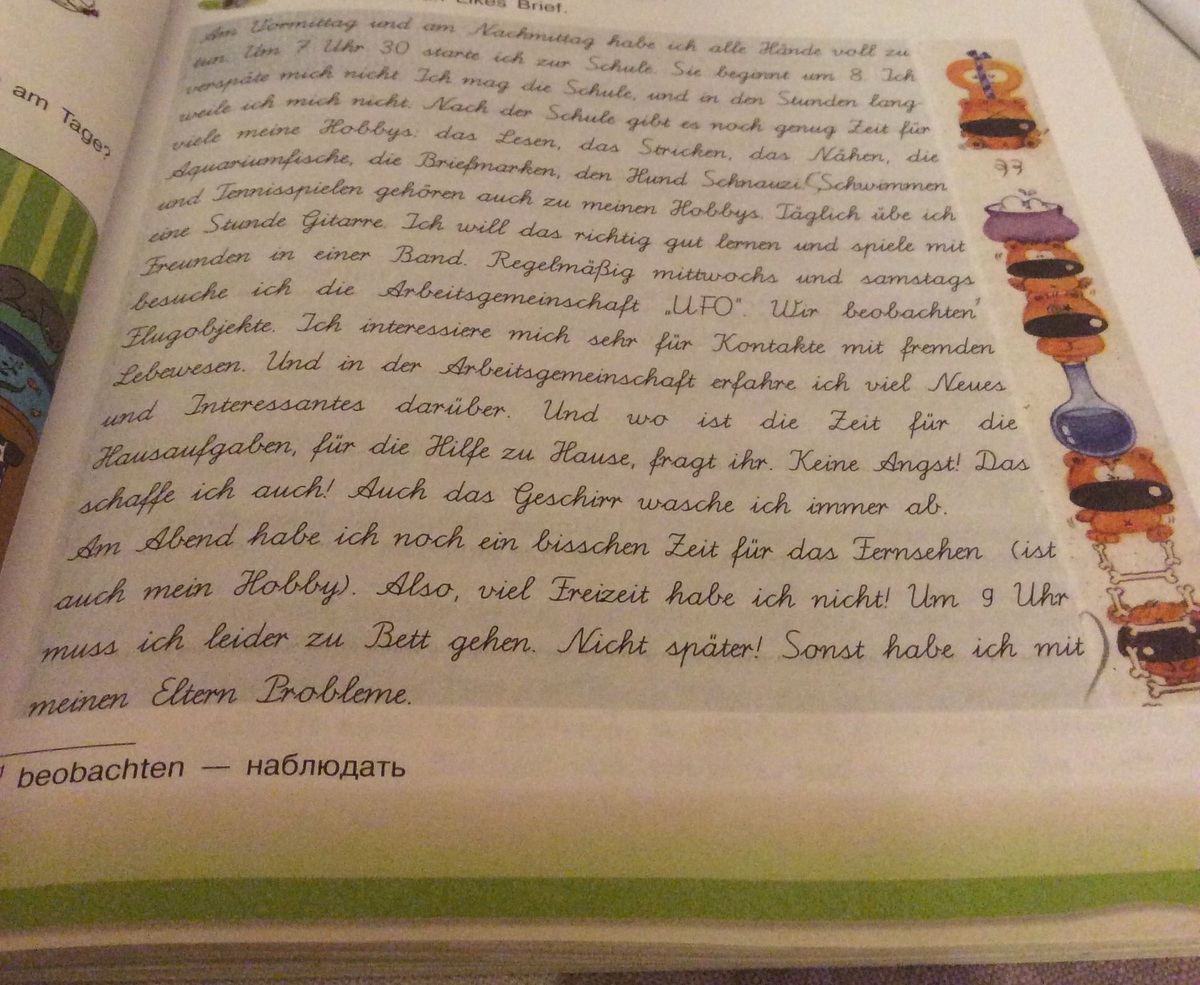 Eikes Brief.
am Tage?
Am Vormittag und am Nachmittag habe ich alle Hände voll zu
tun. Um 7 Uhr 30 starte ich zur Schule. Sie beginnt um 8. Ich
verspäte mich nicht. Ich mag die Schule, und in den Stunden lang-
weile ich mich nicht. Nach der Schule gibt es noch genug Zeit für
viele meine Hobbys: das Lesen, das Stricken, das Nähen, die
Aquariumfische, die Briefmarken, den Hund Schnauzi. (Schwimmen
und Tennisspielen gehören auch zu meinen Hobbys. Täglich übe ich
eine Stunde Gitarre. Ich will das richtig gut lernen und spiele mit
Freunden in einer Band. Regelmäßig mittwochs und samstags
besuche ich die Arbeitsgemeinschaft „UFO“. Wir beobachten¹
Flugobjekte. Ich interessiere mich sehr für Kontakte mit fremden
Lebewesen. Und in der Arbeitsgemeinschaft erfahre ich viel Neues
und Interessantes darüber. Und wo ist die Zeit für die
Hausaufgaben, für die Hilfe zu Hause, fragt ihr. Keine Angst! Das
schaffe ich auch! Auch das Geschirr wasche ich immer ab.
Am Abend habe ich noch ein bisschen Zeit für das Fernsehen (ist
auch mein Hobby). Also, viel Freizeit habe ich nicht! Um 9 Uhr
muss ich leider zu Bett gehen. Nicht später! Sonst habe ich mit)
meinen Eltern Probleme.
¹ beobachten — наблюдать